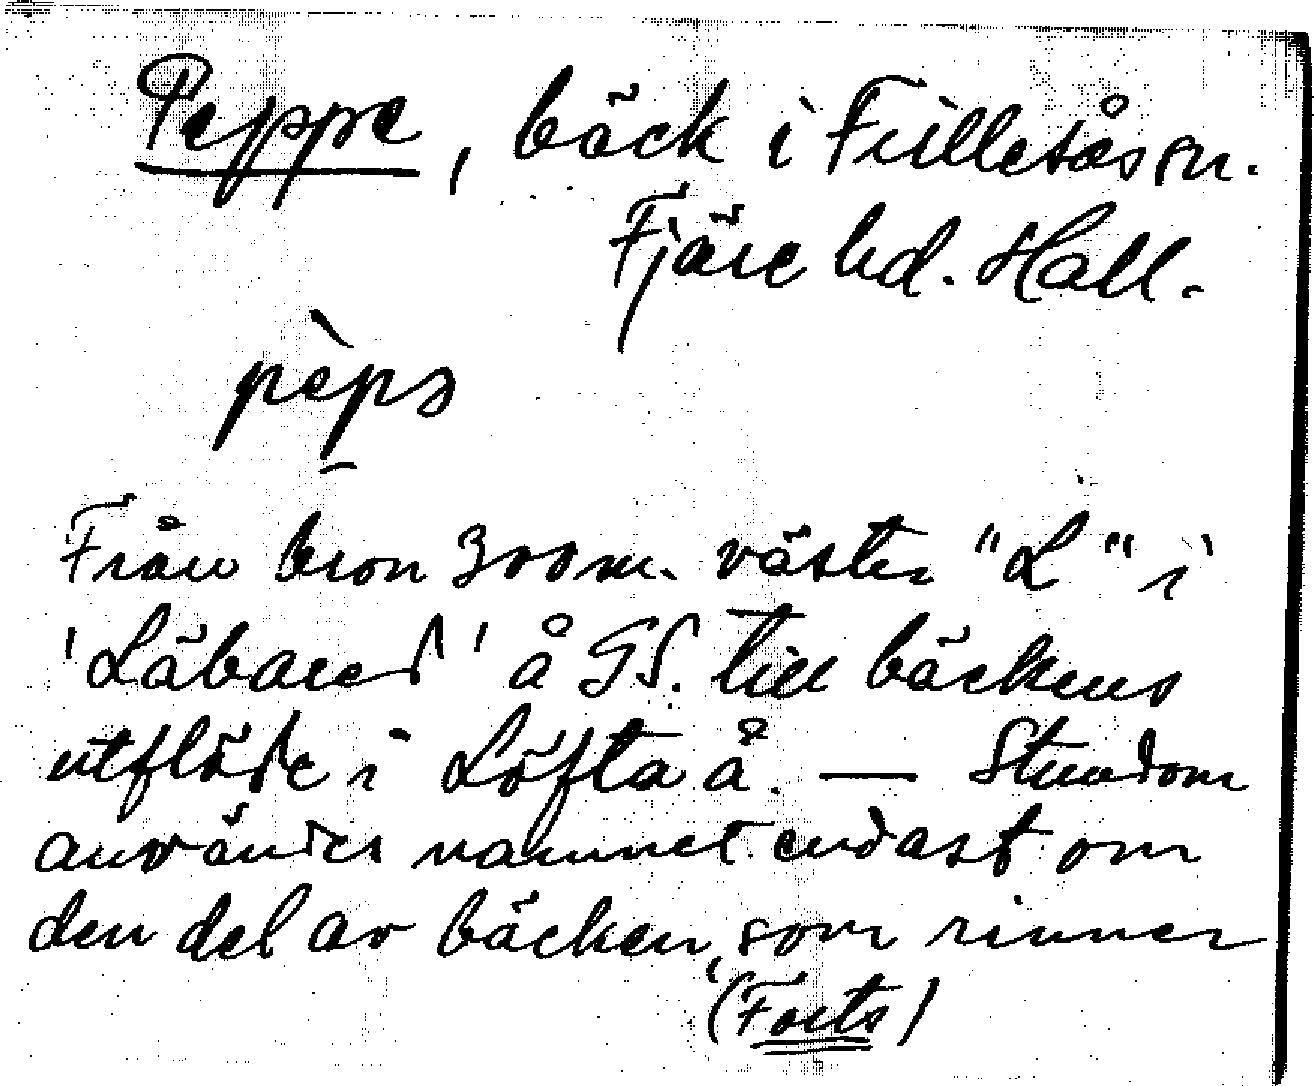 Peppe, bäck i Fülletås sn.
Fjäre hd. Hall.
pèpə
Från bron 300 m. väster "L" i
'Läbared' å GS. till bäckens
utflöde i Löfta å. — Stundom
användes namnet endast om
den del av bäcken, som rinner
(Forts)